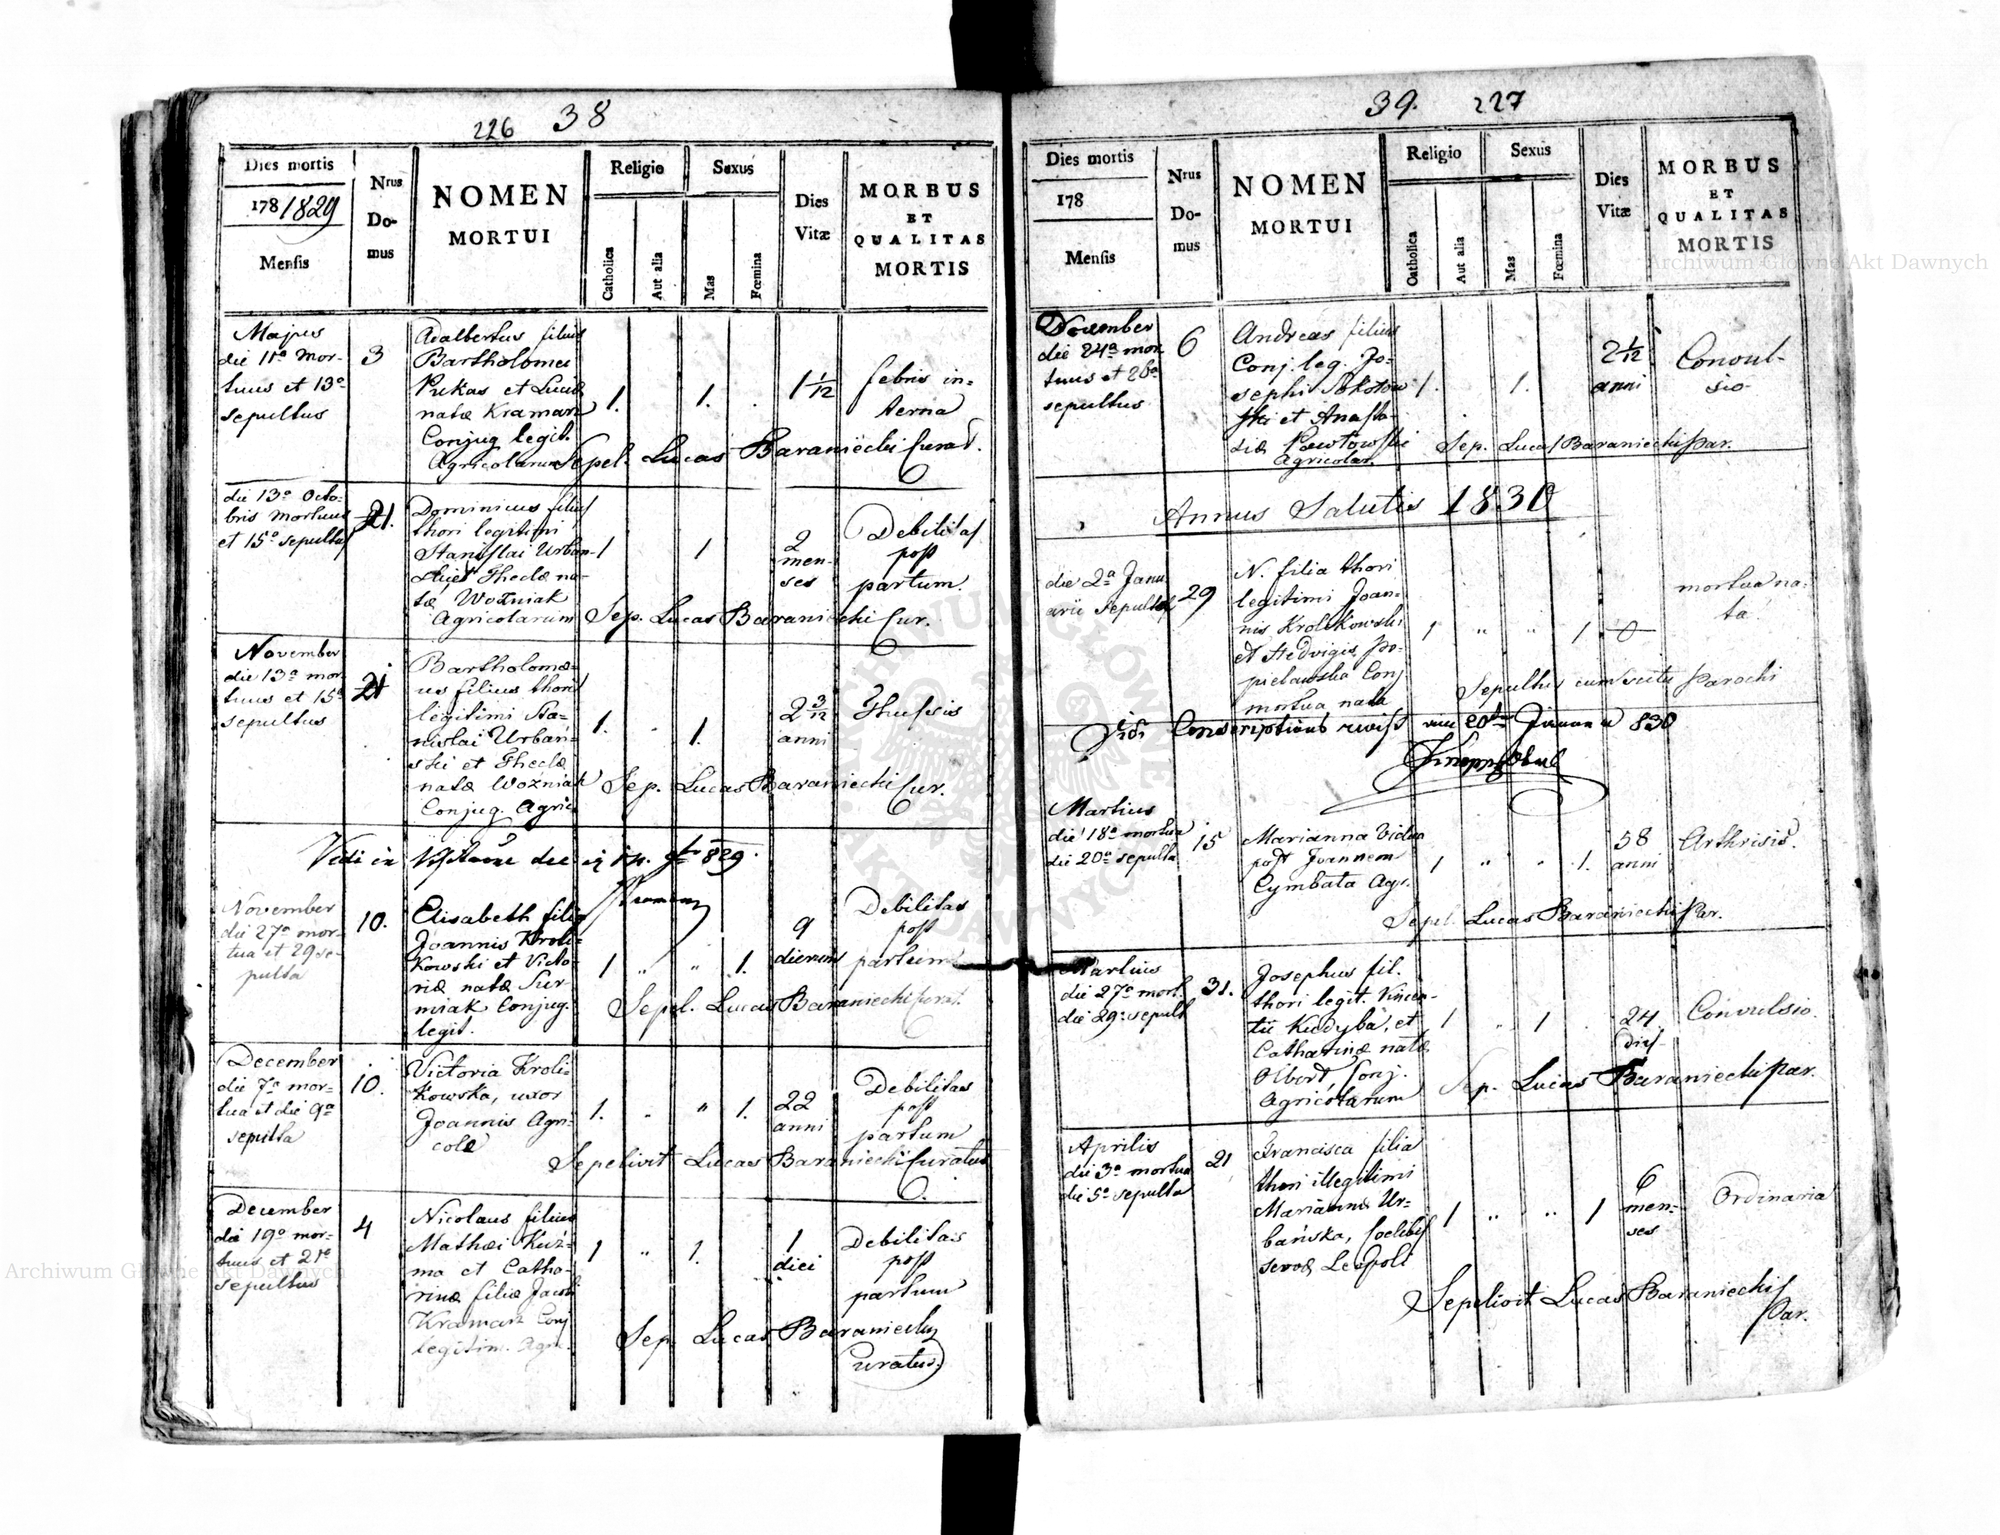 226 38
Dies mortis
1781829
Mensis
Nrus
Do-
mus
NOMEN
MORTUI
Religio
Catholica
Aut alia
Sexus
Mas
Fœmina
Dies
Vitæ
MORBUS
ET
QUALITAS
MORTIS
Majus
die 11a mor-
tuus et 13a
sepultus
3
Adalbertus filius
Bartholomei
Pukas et Luciæ
natæ Kramarz
Conjug legit.
Agricolarum
1. 1.
1 1/12
febris in-
terna
Sepel. Lucas Baraniecki Curat.
die 13a Octo-
bris mortuus
et 15a sepultus
21.
Dominicus filius
thori legitimi
Stanislai Urban-
ski et Theclæ na-
tæ Wozniak
Agricolarum
1 1
2
men-
ses
Debilitas
post
partum.
Sep. Lucas Baraniecki Cur.
November
die 13a mor
tuus et 15a
sepultus
21
Bartholomæ-
us filius thori
legitimi Sta-
nislai Urbań-
ski et Theclæ
natæ Wozniak
Conjug. Agric
1. 1.
2 3/12
anni
Thussis
Sep. Lucas Baraniecki Cur.
Vidi in
829.
November
die 27a mor-
tua et 29 se-
pulta
10.
Elisabeth filia
Joannis Kroli-
kowski et Victo-
riæ natæ Sur
miak Conjug.
legit.
1 " " 1.
9
dierum
Debilitas
post
partum
Sepel. Lucas Baraniecki Curat.
December
die 7a mor-
tua et die 9a
sepulta
10.
Victoria Kroli-
kowska, uxor
Joannis Agri-
colæ
1. " 1.
22
anni
Debilitas
post
partum
Sepelivit Lucas Baraniecki Curatus
December
die 19a mor-
tuus et 21a
sepultus
4
Nicolaus filius
Mathæi Kuź-
ma et Catha-
rinæ filiæ Jacobi
Kramarz Conj
legitim. Agric.
1 " 1.
1
diei
Debilitas
post
partum
Sep. Lucas Baraniecki
Curatus.
39. 227
Dies mortis
178
Mensis
Nrus
Do-
mus
NOMEN
MORTUI
Religio
Catholica
Aut alia
Sexus
Mas
Fœmina
Dies
Vitæ
MORBUS
ET
QUALITAS
MORTIS
November
die 24a mor
tuus et 26a
sepultus
6
Andreas filius
Conj. leg. Jo-
sephi Sokołow
ski et Anasta-
siæ Pawłowski
Agricolar.
1. 1.
2 1/12
anni
Convul-
sio
Sep. Lucas Baraniecki Par.
Annus Salutis 1830
die 2a Janu
arii sepultus
29
N. filia thori
legitimi Joan-
nis Krolikowski
et Hedvigis Po-
pielawska Conj
mortua nata
1 " " 1 0
mortua na-
ta
Sepultus cum scitu Parochi
Januar 830
Martius
die 18a mortua
die 20a sepulta
15
Marianna Vidua
post Joannem
Cymbata Agr.
1 " " 1.
58
anni
Arthrisis.
Sepel. Lucas Baraniecki Par.
Martius
die 27a mort.
die 29a sepult
31.
Josephus fil.
thori legit. Vincen-
tii Kudyba, et
Catharinæ natæ
Olbort Conj.
Agricolarum
1 " 1
24
dies
Convulsio.
Sep. Lucas Baraniecki Par.
Aprilis
die 3a mortua
die 5a sepulta
21
Francisca filia
thori illegitimi
Mariannæ Ur-
bańska, Coelibis
servæ Leopoli
1 " " 1
6
men-
ses
Ordinaria
Sepelivit Lucas Baraniecki
Par.
Archiwum Główne Akt Dawnych
Archiwum Główne Akt Dawnych
ARCHIWUM GŁÓWNE AKT DAWNYCH